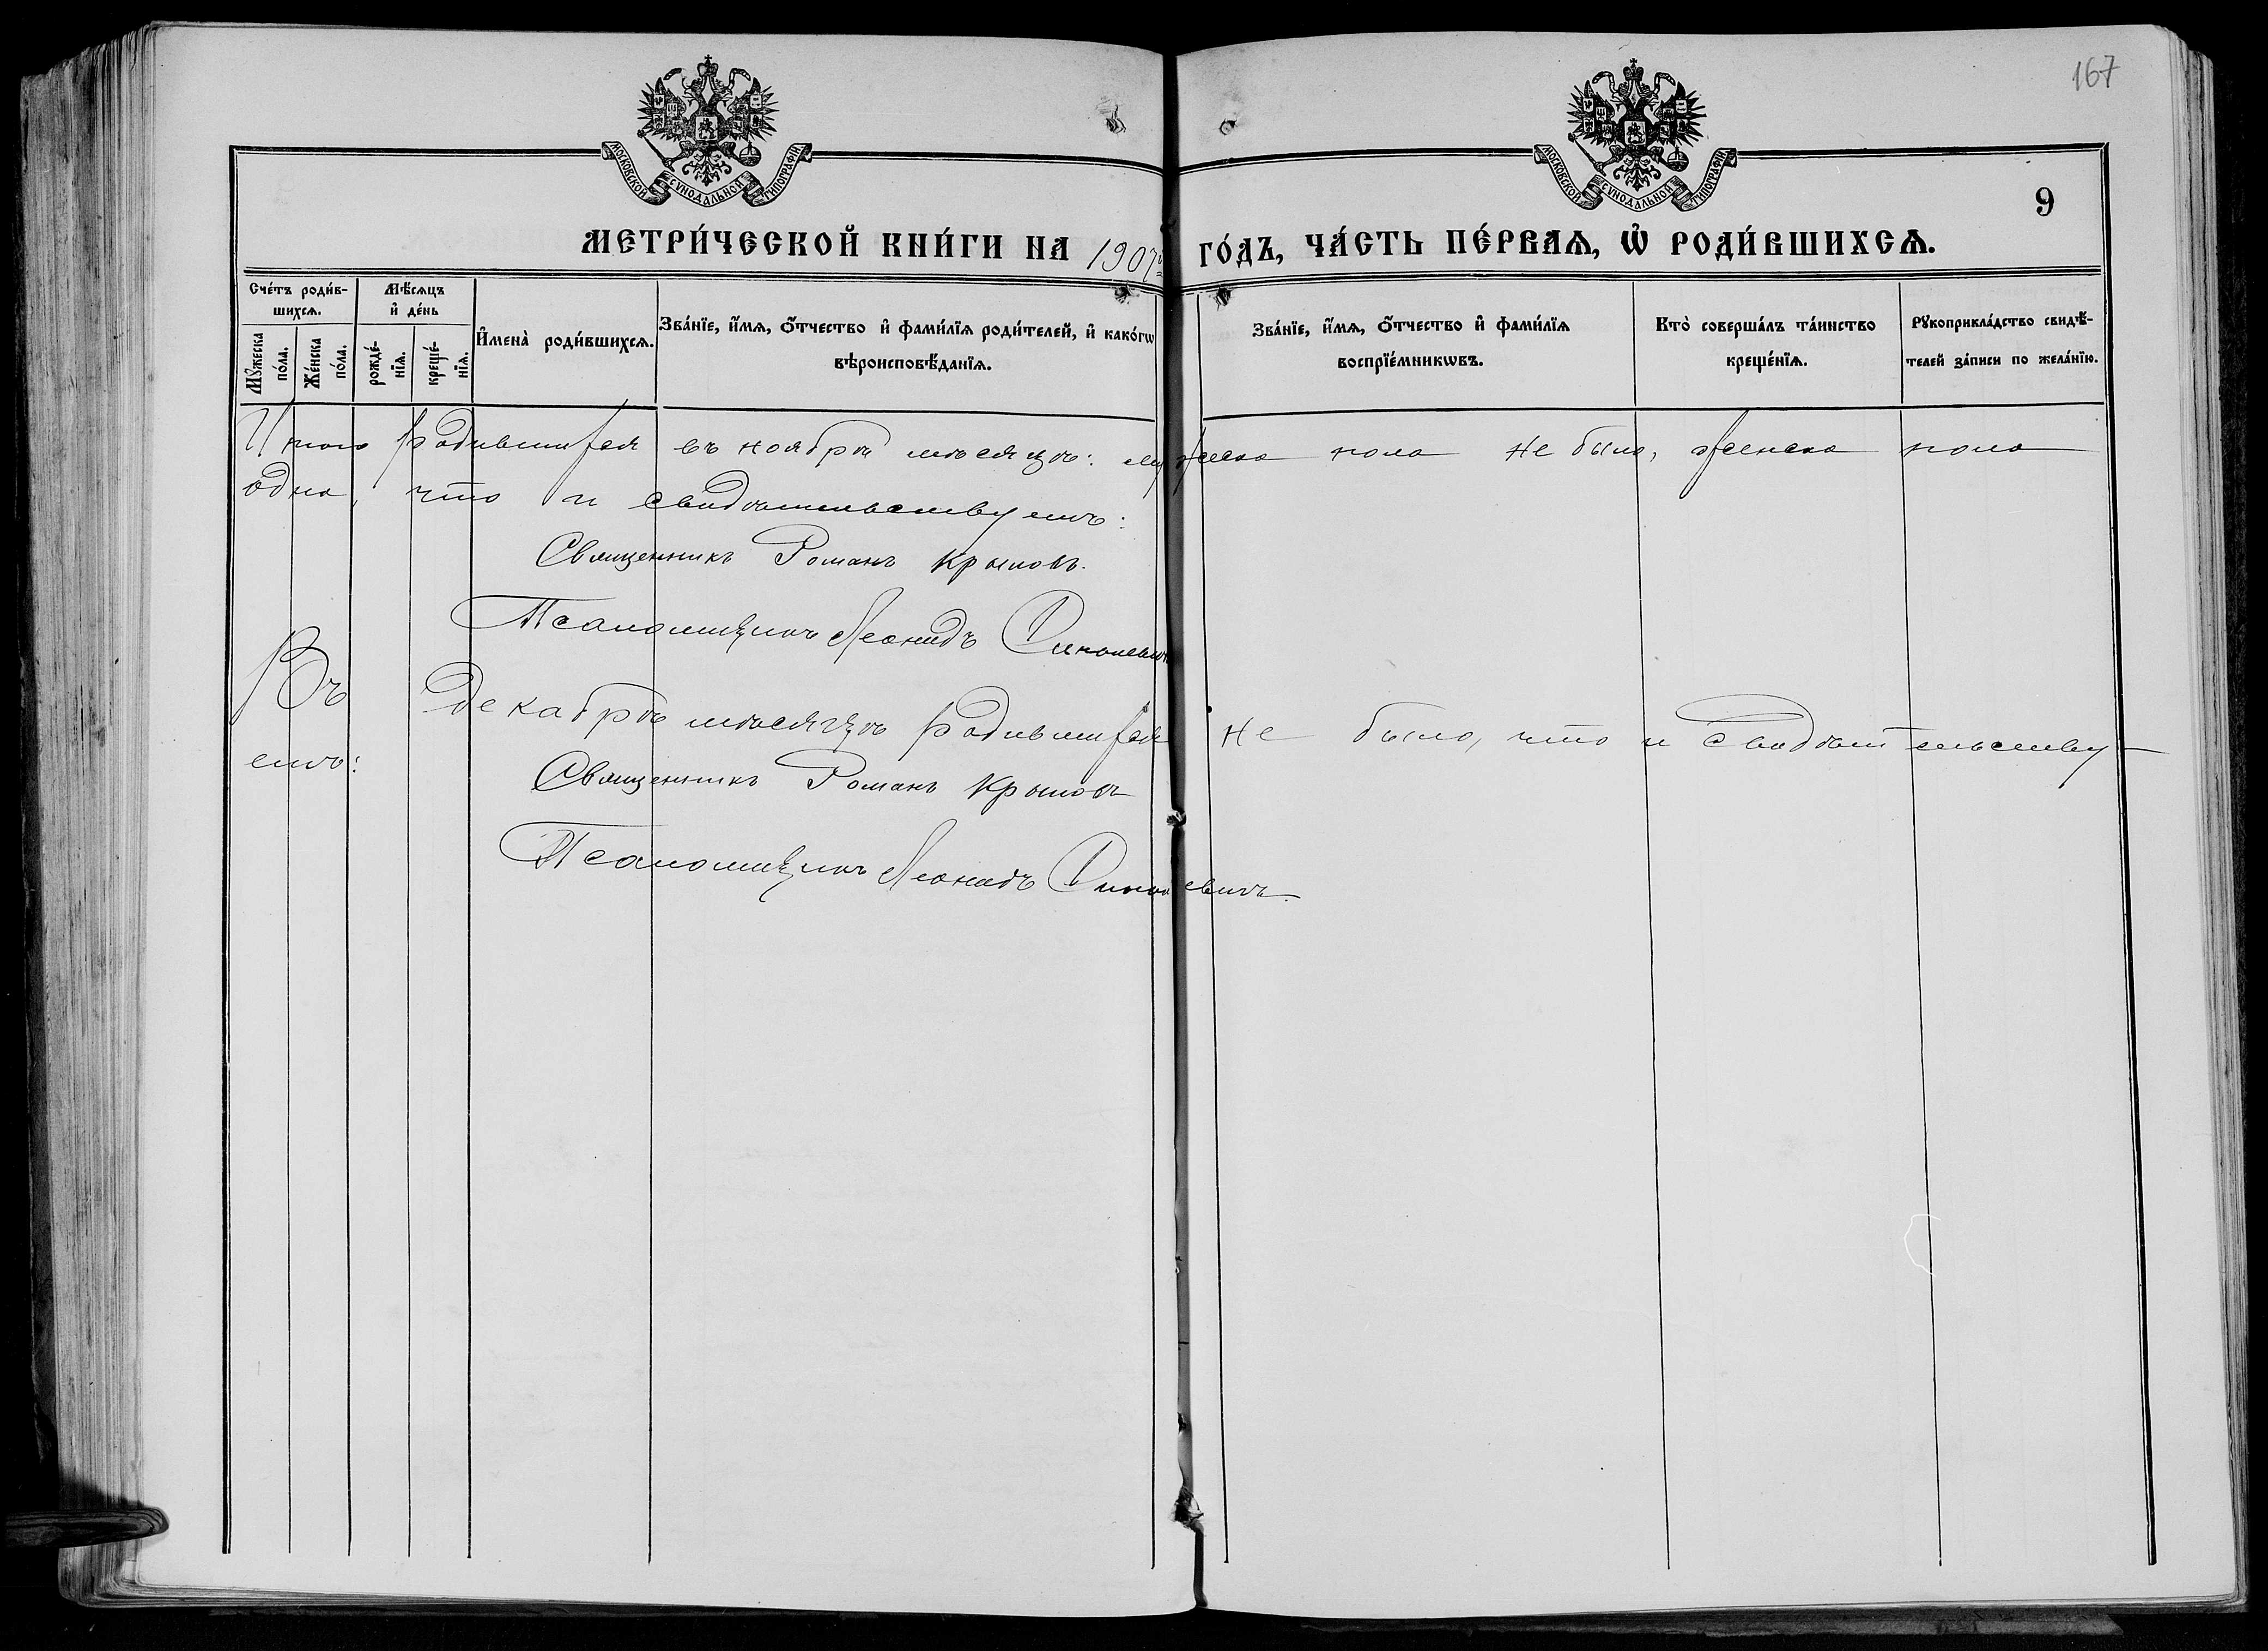 167
МОСКОВСКОЙ СѴНОДАЛЬНОЙ ТИПОГРАФІИ
МОСКОВСКОЙ СѴНОДАЛЬНОЙ ТИПОГРАФІИ
9
МЕТРИ́ЧЕСКОЙ КНИ́ГИ НА 1907 ГО́ДЪ, ЧА́СТЬ ПЕ́РВАѦ, Ѡ҆ РОДИ́ВШИХСѦ.
Сче́тъ роди́в-
шихсѧ.
Мꙋ́жеска по́ла.
Же́нска по́ла.
Мѣ́сѧцъ
и҆ де́нь
рожде́-нїѧ.
креще́-нїѧ.
И҆мена̀ роди́вшихсѧ.
Зва́нїе, и҆́мѧ, ѻ҆́тчество и҆ фами́лїѧ роди́телей, и҆ како́гѡ
вѣроисповѣ́данїѧ.
Зва́нїе, и҆́мѧ, ѻ҆́тчество и҆ фами́лїѧ
воспрїе́мникѡвъ.
Кто̀ соверша́лъ та́инство
креще́нїѧ.
Рꙋкоприкла́дство свидѣ́-
телей за́писи по жела́нїю.
Итого родившихся въ ноябрѣ мѣсяцѣ: мужеска пола не было, женска пола
одна, что и свидѣтельствуетъ:
Священникъ Романъ Крыловъ.
Псаломщикъ Леонидъ
Въ Декабрѣ мѣсяцѣ родившихся не было, что и свидѣтельству-
етъ:
Священникъ Романъ Крыловъ
Псаломщикъ Леонидъ